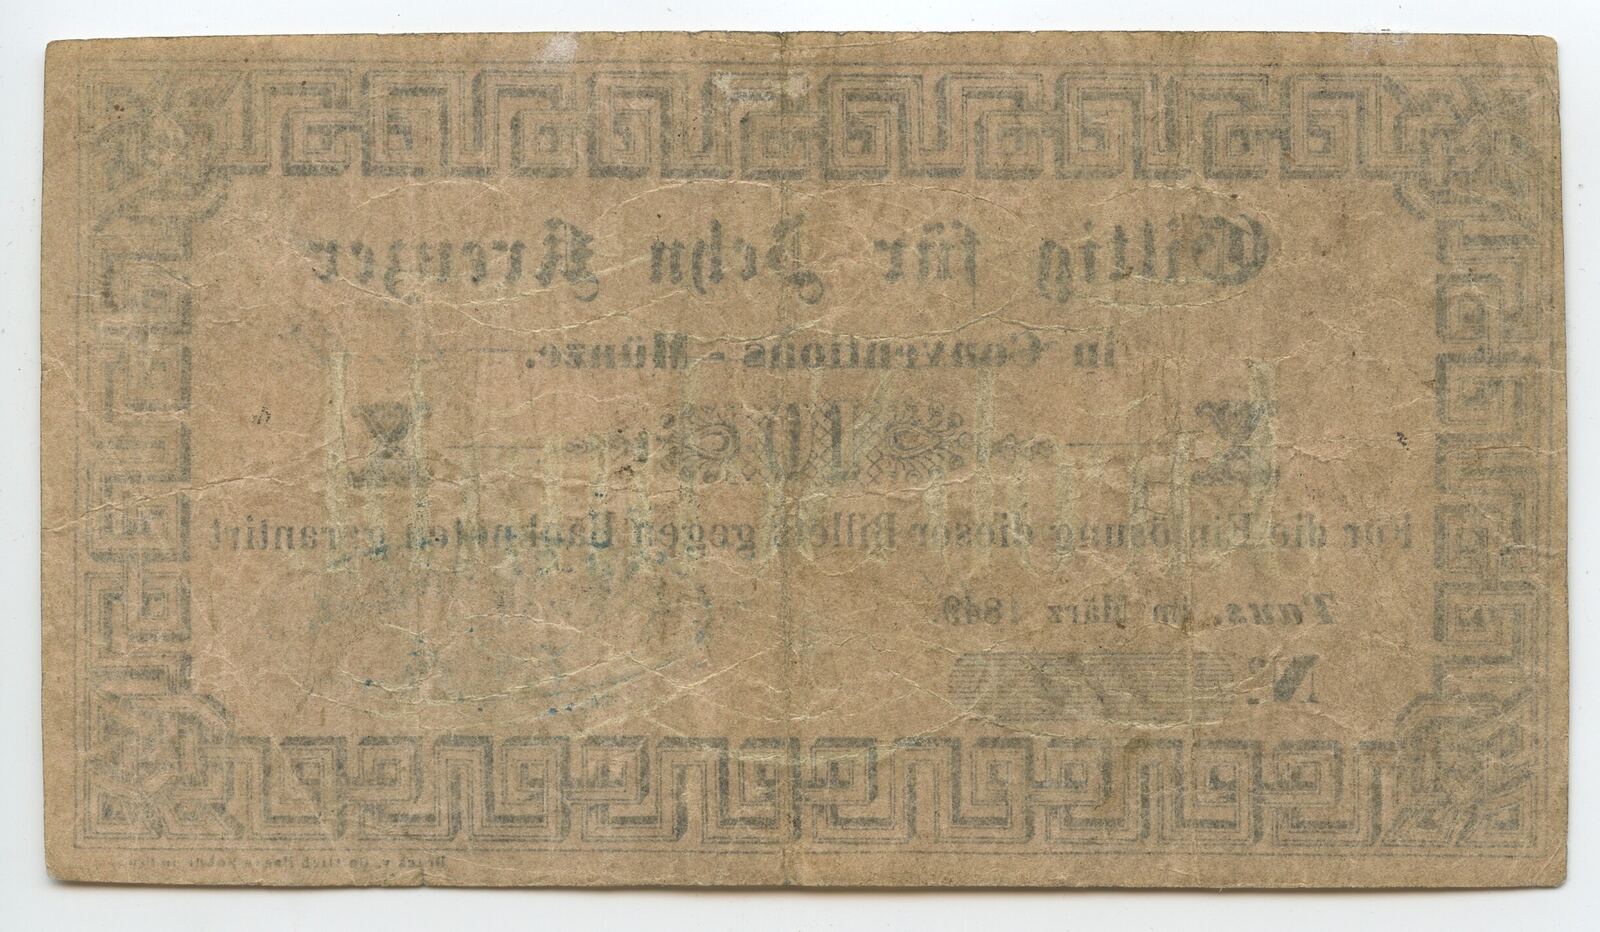 Giltig für Zehn Kreuzer
in Conventions-Münze.
X 10 X
Für die Einlösung dieser Billets gegen Banknoten garantirt
Taus, im März 1849.
N:
Druck v.